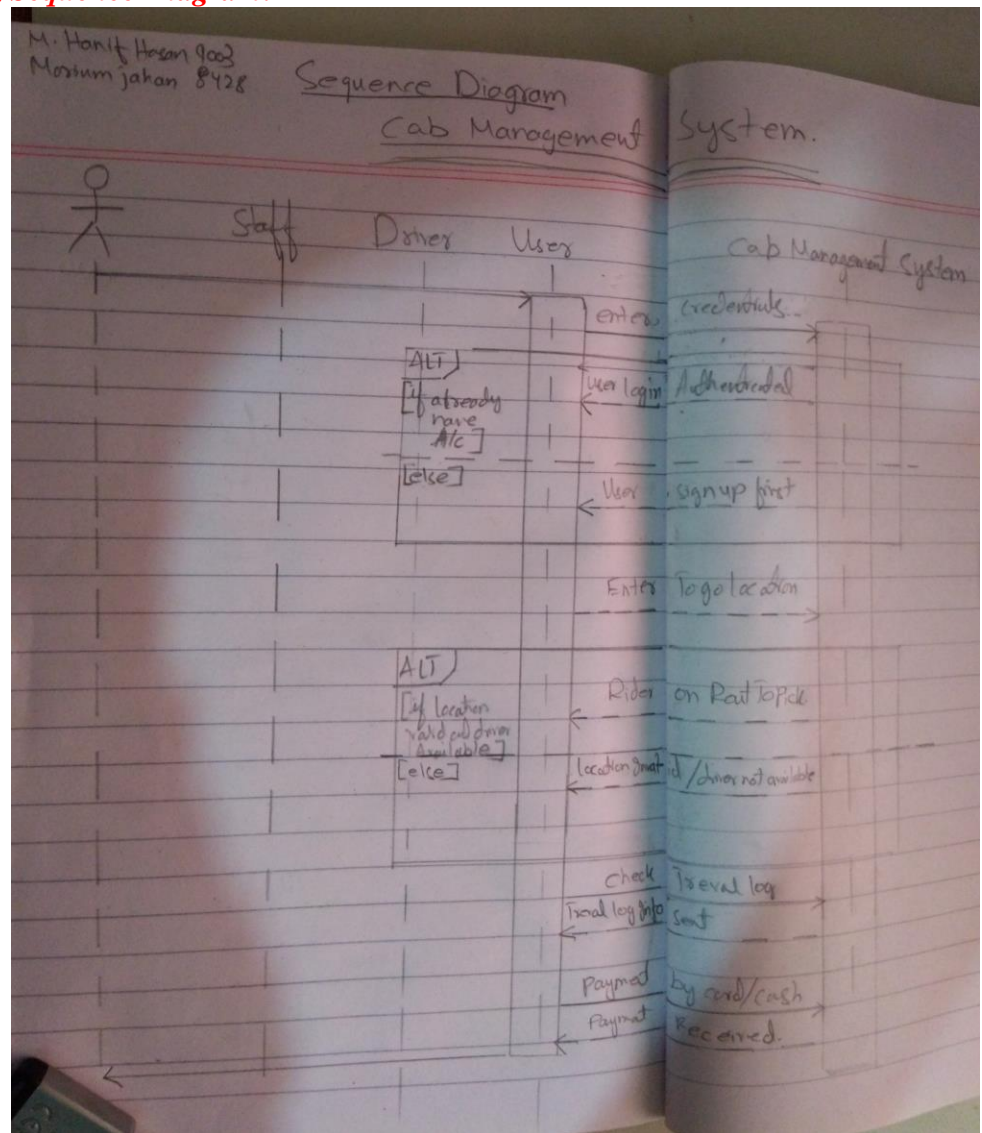 Sequence Diagram
M. Hanif Hasan 9003
Marium jahan 8428
Sequence Diagram
Cab Management System.
Staff
Driver
User
Cab Management System
enters credentials
ALT
[if already
have
A/c]
User login Authenticated
[else]
User signup first
Enter To go location
ALT
[if location
valid and driver
Available]
Rider on Rout To Pick
[else]
location Invalid/driver not available
Check Treval log
Treval log Info sent
Payment by card/cash
Paymat Received.